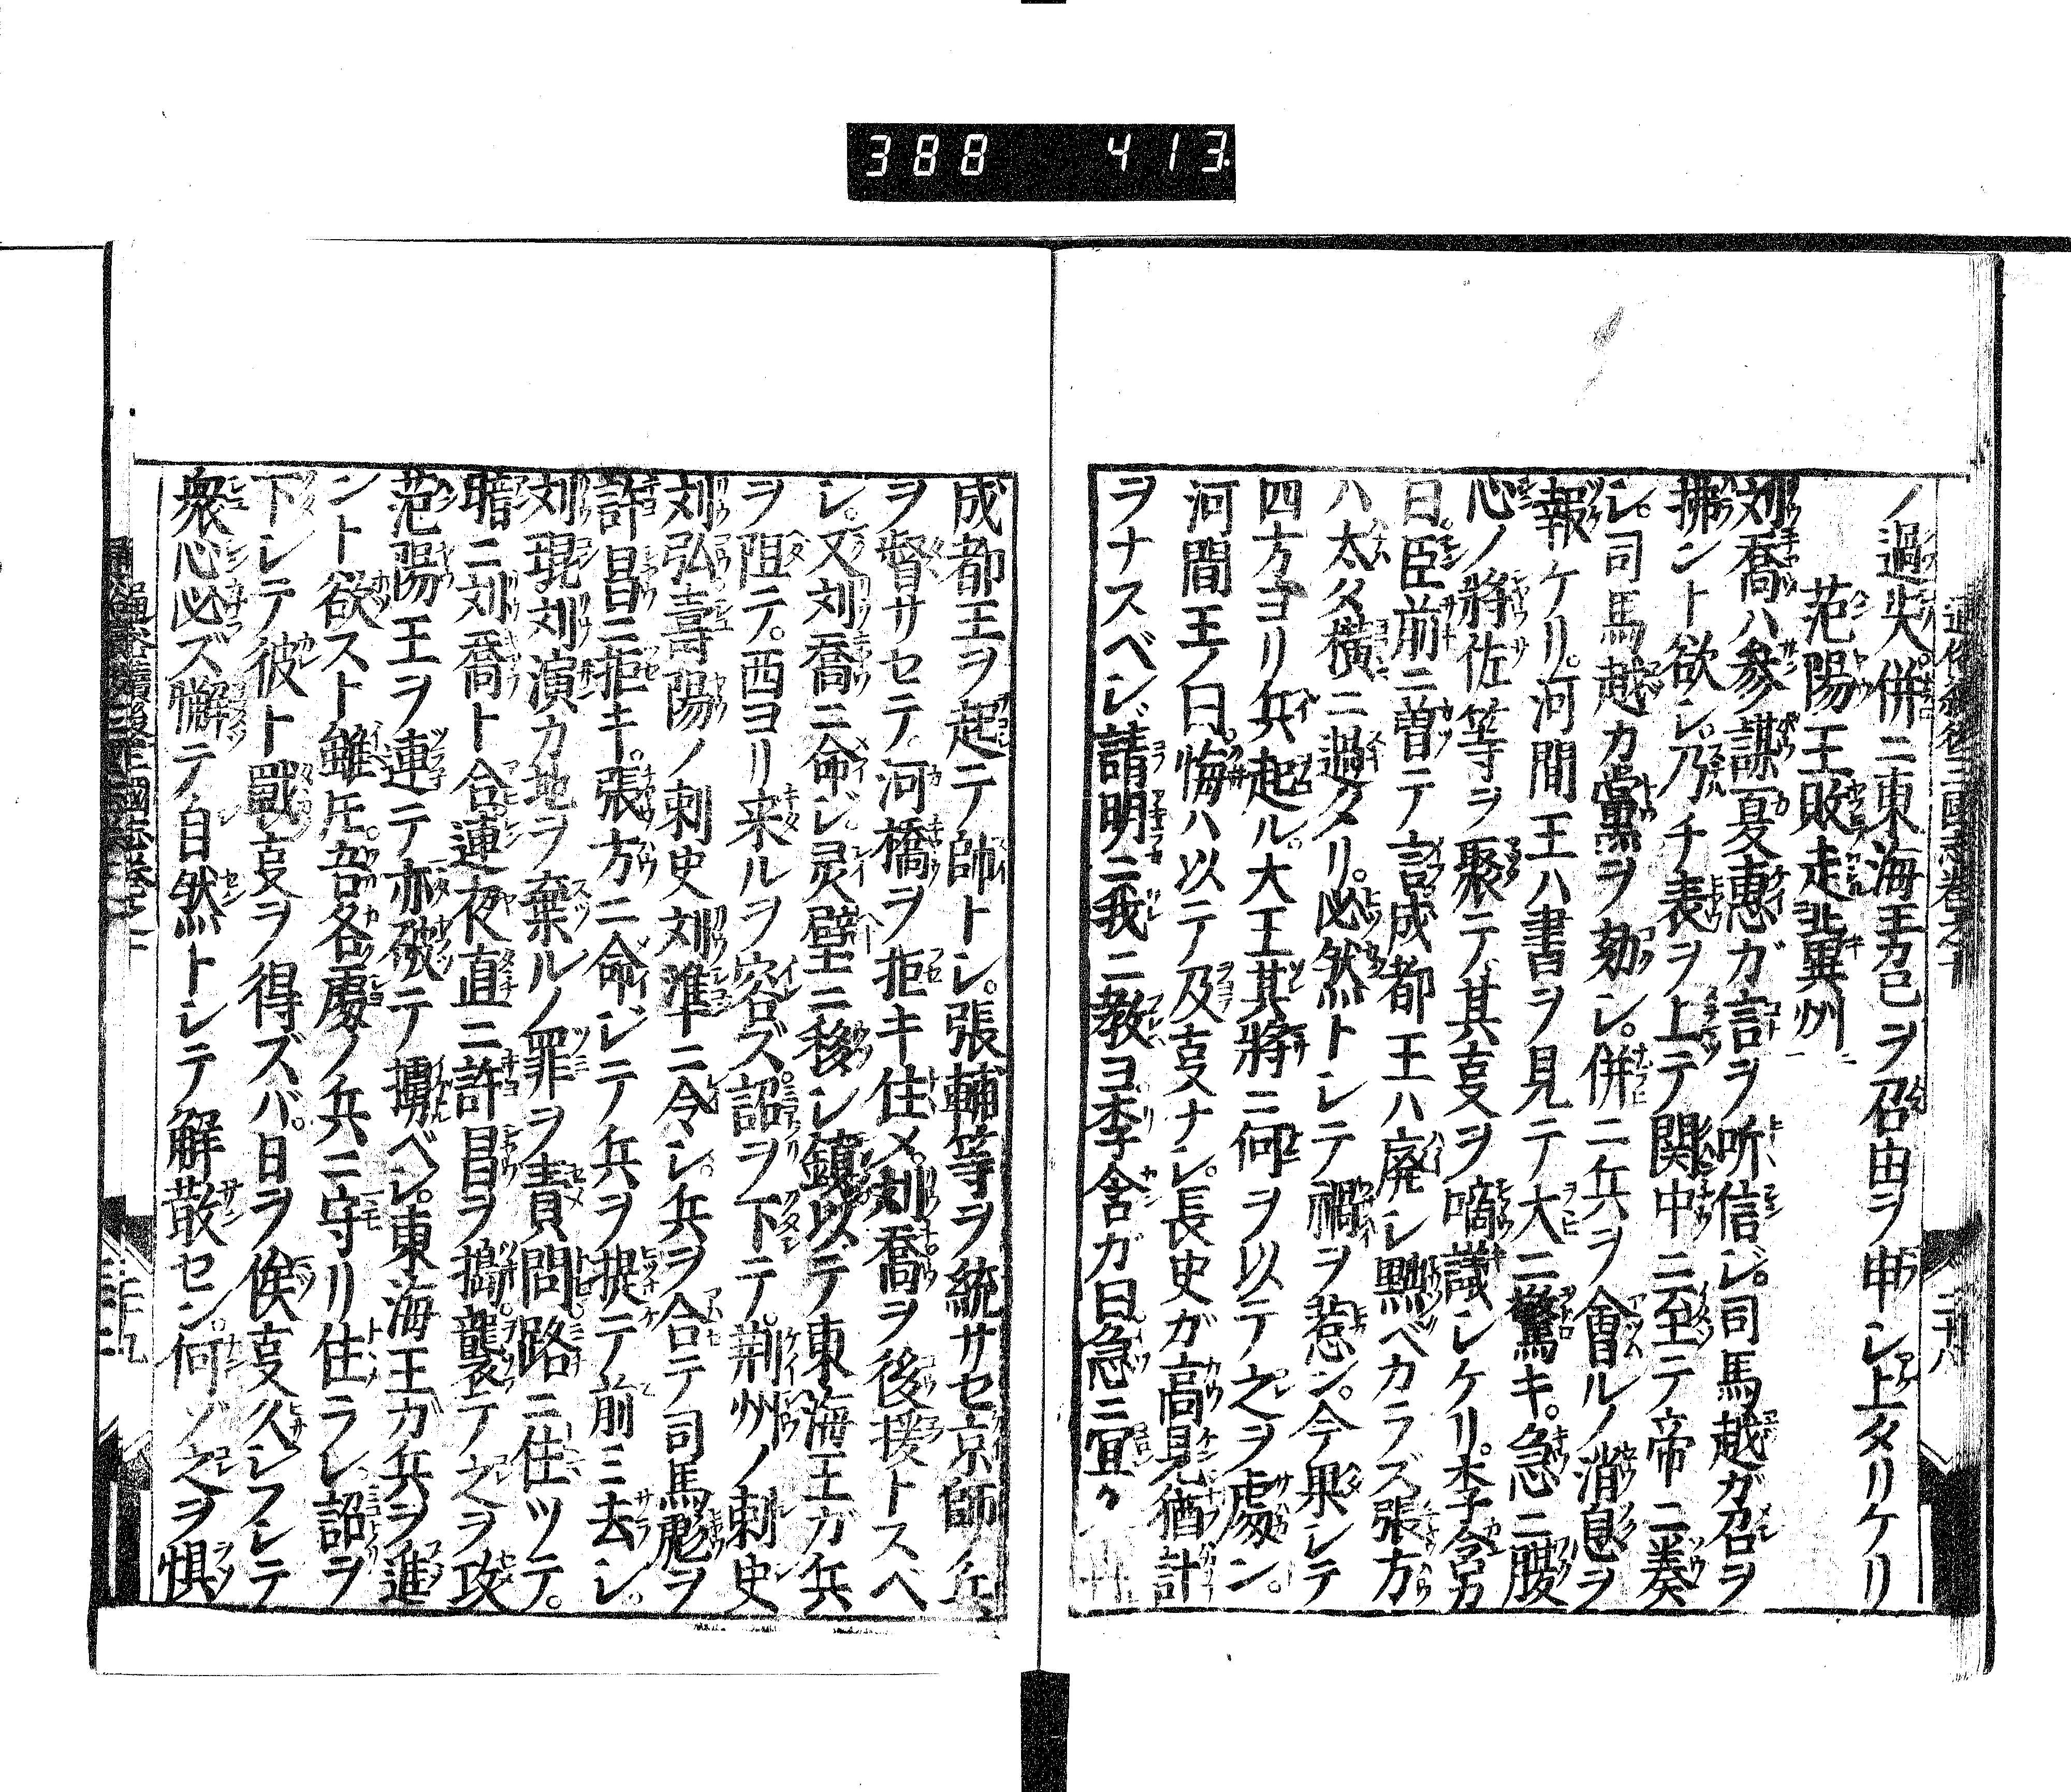 388 413
通俗續後三國志卷之十 二十八
ノ過失。併ニ東海王己ヲ召由ヲ申シ上タリケリ
范陽王敗走冀州
刘喬ハ參謀夏惠ガ言ヲ听信ジ。司馬越ガ召ヲ
拂ント欲シ。乃チ表ヲ上テ関中ニ至テ帝ニ奏
シ。司馬越カ黨ヲ劾シ。併ニ兵ヲ會ルノ消息ヲ
報ケリ。河間王ハ書ヲ見テ大ニ驚キ。急ニ腹
心ノ將佐等ヲ聚テ其叓ヲ啇議シケリ。李含カ
曰。臣前ニ曽テ言成都王ハ廃シ黙ベカラズ張方
ハ太タ橫ニ過タリ。必然トシテ禍ヲ惹ン。今果シテ
四方ヨリ兵起ル。大王其將ニ何ヲ以テ之ヲ處ン。
河間王ノ曰。悔ハ以テ及叓ナシ。長史ガ高見猶計
ヲナスベシ。請明ニ我ニ教ヨ。李含ガ曰急ニ冝ク
成都王ヲ起テ帥トシ。張輔等ヲ統サセ京師ノ兵
ヲ督サセテ。河橋ヲ拒キ住メ。刘喬ヲ後援トスベ
シ。又刘喬ニ命ジ。灵壁ニ移シ鎮以テ東海王カ兵
ヲ阻テ。西ヨリ来ルヲ容ズ。詔ヲ下テ。荆州ノ刺史
刘弘壽陽ノ刺史刘準ニ令シ。兵ヲ合テ司馬虓ヲ
許昌ニ拒キ。張方ニ命ジテ兵ヲ提テ前ミ去シ。
刘琨刘演カ地ヲ棄ルノ罪ヲ責問路ニ住ツテ。
暗ニ刘喬ト合連夜直ニ許昌ヲ搗襲テ之ヲ攻
范陽王ヲ連テ亦破テ擄ベシ。東海王ガ兵ヲ進
ント欲スト雖圧。吾各處ノ兵ニ守リ住ラレ。詔ヲ
下シテ彼ト戰叓ヲ得ズバ。日ヲ俟叓久シフシテ
衆心必ズ懈テ自然トシテ解散セン。何ゾ之ヲ惧
二十九